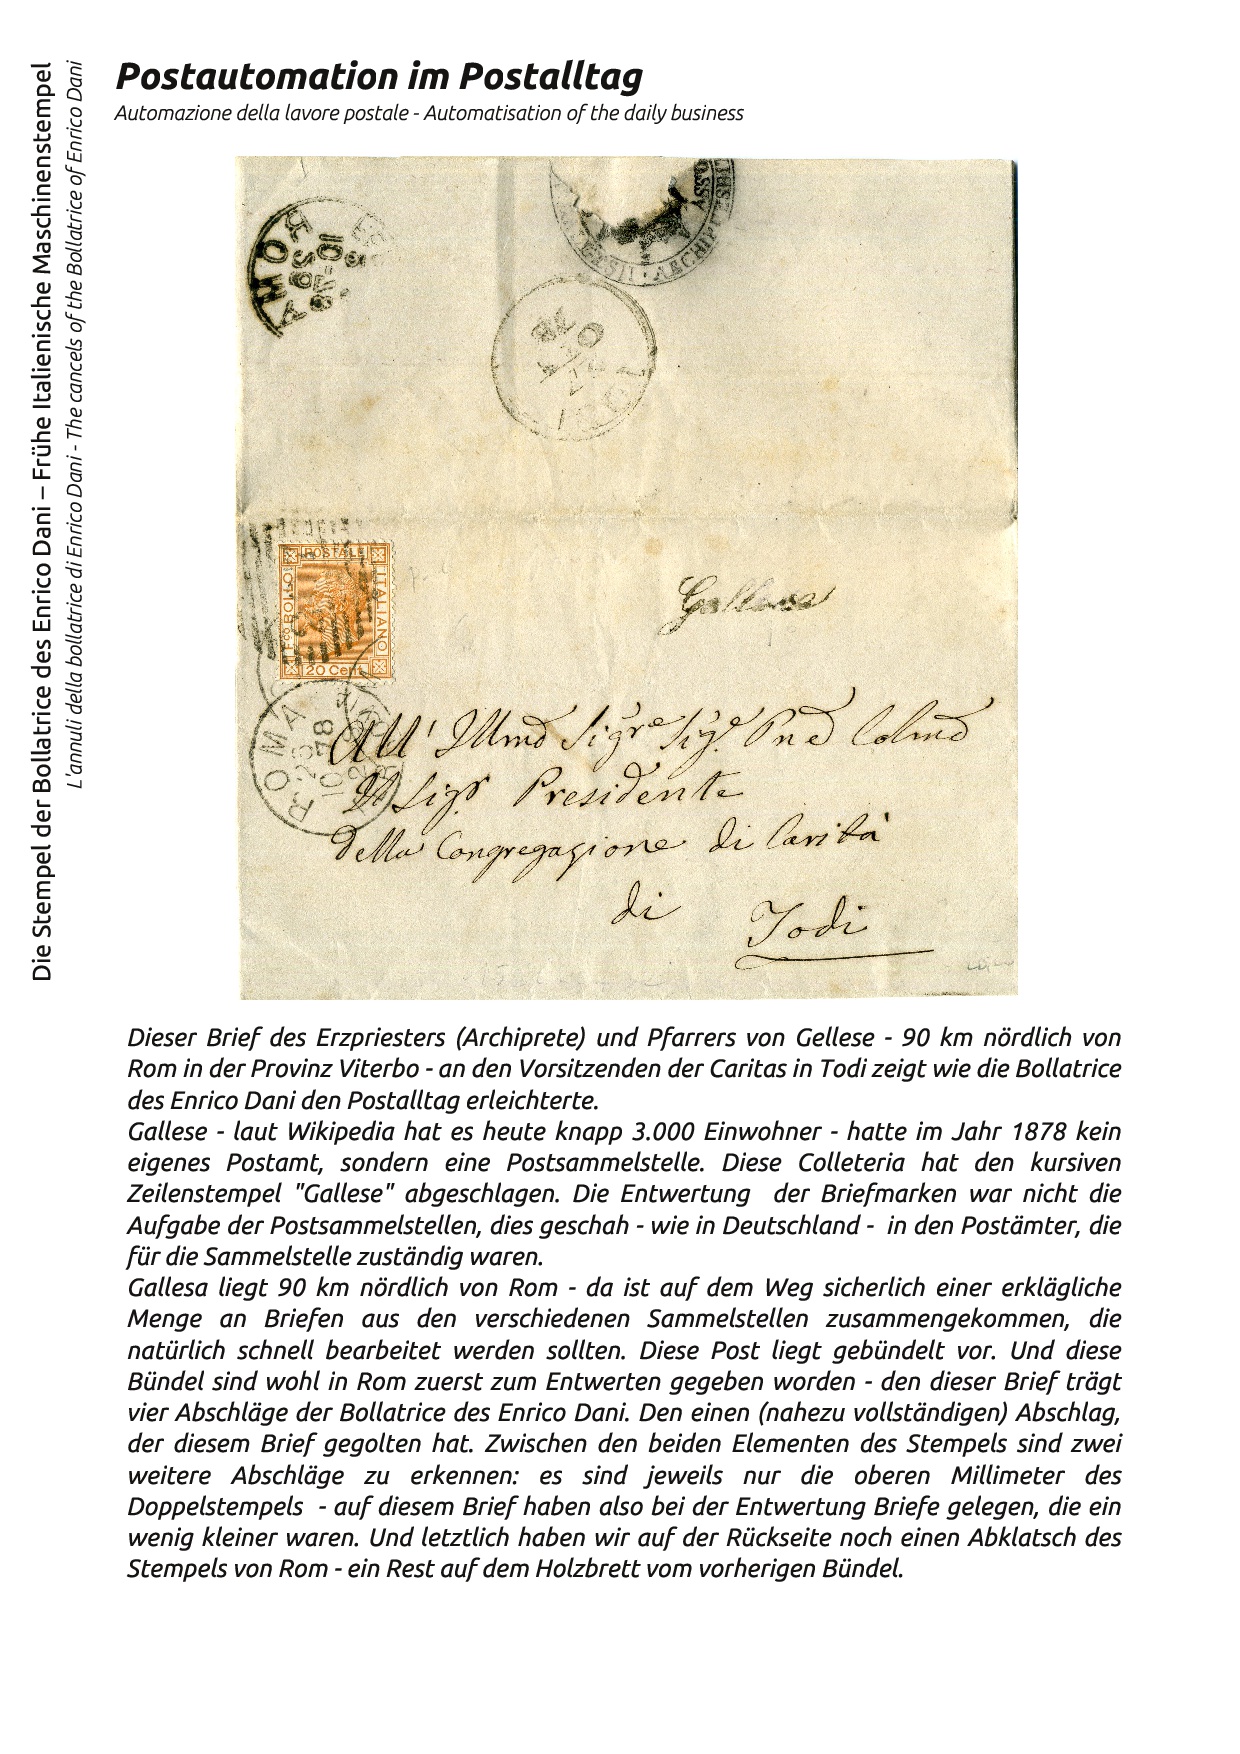 Die Stempel der Bollatrice des Enrico Dani – Frühe Italienische Maschinenstempel
L'annuli della bollatrice di Enrico Dani - The cancels of the Bollatrice of Enrico Dani
Postautomation im Postalltag
Automazione della lavore postale - Automatisation of the daily business
ROMA
ARCHIP
TODI
POSTALE
ITALIANO
BOLLO
20 Cent
Gallese
ROMA
10 78
All' Illmo Sigre Sigr Pne Colmo
Il Sigr Presidente
della Congregazione di Carità
di Todi
Dieser Brief des Erzpriesters (Archiprete) und Pfarrers von Gellese - 90 km nördlich von
Rom in der Provinz Viterbo - an den Vorsitzenden der Caritas in Todi zeigt wie die Bollatrice
des Enrico Dani den Postalltag erleichterte.
Gallese - laut Wikipedia hat es heute knapp 3.000 Einwohner - hatte im Jahr 1878 kein
eigenes Postamt, sondern eine Postsammelstelle. Diese Colleteria hat den kursiven
Zeilenstempel "Gallese" abgeschlagen. Die Entwertung der Briefmarken war nicht die
Aufgabe der Postsammelstellen, dies geschah - wie in Deutschland - in den Postämter, die
für die Sammelstelle zuständig waren.
Gallesa liegt 90 km nördlich von Rom - da ist auf dem Weg sicherlich einer erklägliche
Menge an Briefen aus den verschiedenen Sammelstellen zusammengekommen, die
natürlich schnell bearbeitet werden sollten. Diese Post liegt gebündelt vor. Und diese
Bündel sind wohl in Rom zuerst zum Entwerten gegeben worden - den dieser Brief trägt
vier Abschläge der Bollatrice des Enrico Dani. Den einen (nahezu vollständigen) Abschlag,
der diesem Brief gegolten hat. Zwischen den beiden Elementen des Stempels sind zwei
weitere Abschläge zu erkennen: es sind jeweils nur die oberen Millimeter des
Doppelstempels - auf diesem Brief haben also bei der Entwertung Briefe gelegen, die ein
wenig kleiner waren. Und letztlich haben wir auf der Rückseite noch einen Abklatsch des
Stempels von Rom - ein Rest auf dem Holzbrett vom vorherigen Bündel.